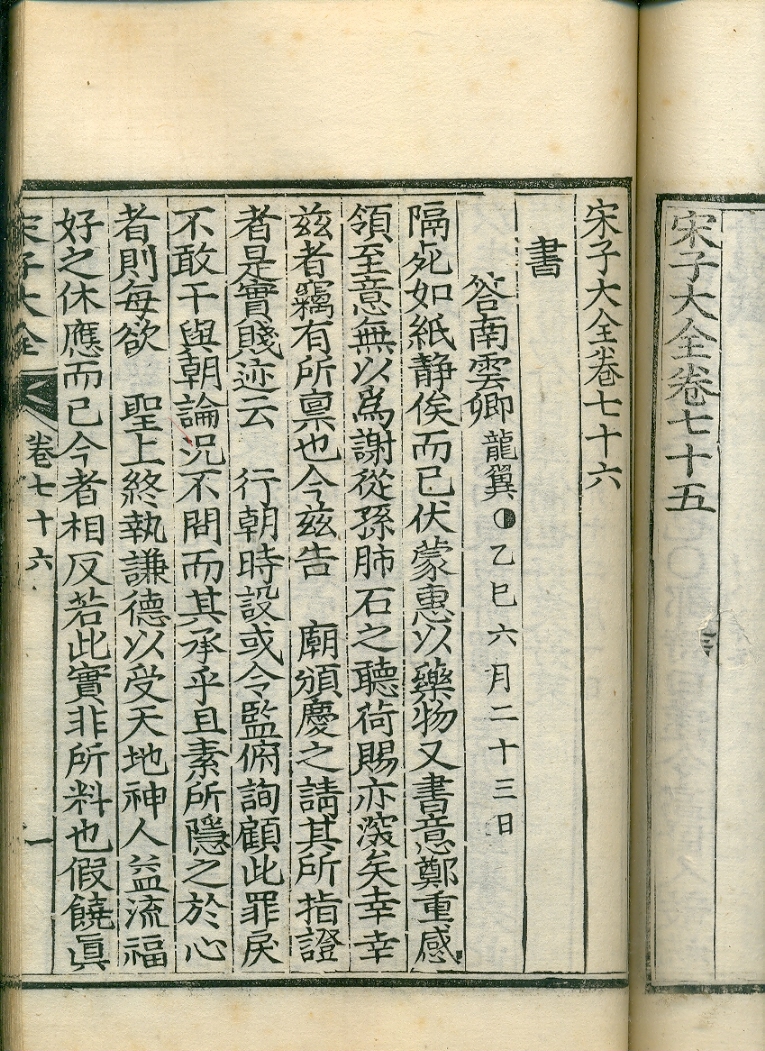 宋子大全卷七十五
宋子大全卷七十六
書
答南雲卿 龍翼 乙巳六月二十三日
隔死如紙静俟而已伏蒙惠以藥物又書意鄭重感
領至意無以爲謝從孫肺石之聽荷賜亦深矣幸幸
兹者竊有所禀也今兹告 廟頒慶之請其所指證
者是實賤迹云 行朝時設或令監俯詢顧此罪戾
不敢干與朝論况不問而其承乎且素所隱之於心
者則每欲 聖上終執謙德以受天地神人益流福
好之休應而已今者相反若此實非所料也假饒眞
宋子大全 卷七十六 一